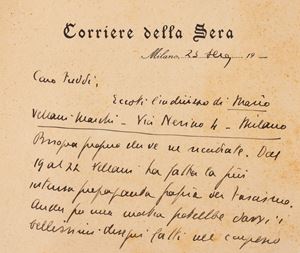 Corriere della Sera
Milano, 23 19
Caro Freddi,
Eccoti l'indirizzo di Mario
Vellani-Marchi - Via Nerino 4 - Milano
Bisogna proprio che ve ne ricordiate. Dal
19 al 22 Vellani ha fatto la più
intensa propaganda del fascismo.
Anche per una mostra potrebbe darvi i
bellissimi disegni fatti nel